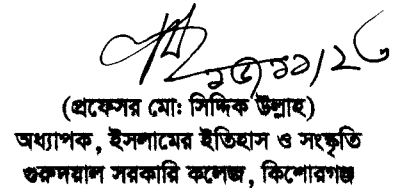 (প্রফেসর মো: সিদ্দিক উল্লাহ)
অধ্যাপক, ইসলামের ইতিহাস ও সংস্কৃতি
গুরুদয়াল সরকারি কলেজ, কিশোরগঞ্জ